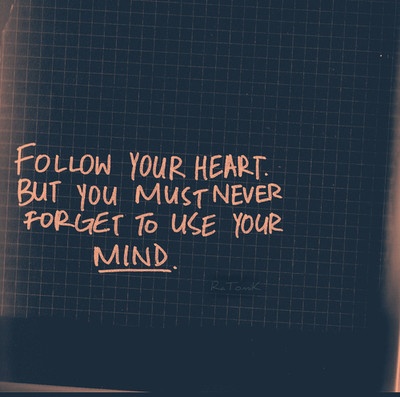 FOLLOW YOUR HEART.
BUT YOU MUST NEVER
FORGET TO USE YOUR
MIND.